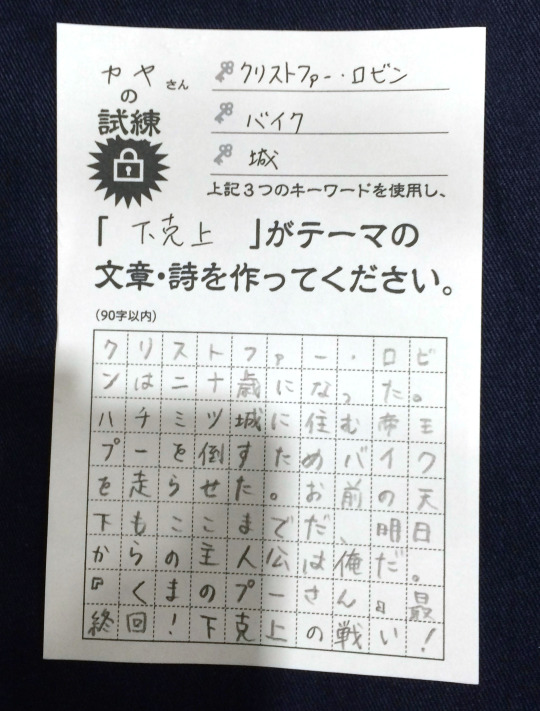 カヤさん
の
試練
クリストファー・ロビン
バイク
城
上記3つのキーワードを使用し、
「下克上」がテーマの
文章・詩を作ってください。
(90字以内)
クリストファー・ロビ
ンは二十歳になった。
ハチミツ城に住む帝王
プーを倒すためバイク
を走らせた。お前の天
下もここまでだ、明日
からの主人公は俺だ。
『くまのプーさん』最
終回!下克上の戦い!